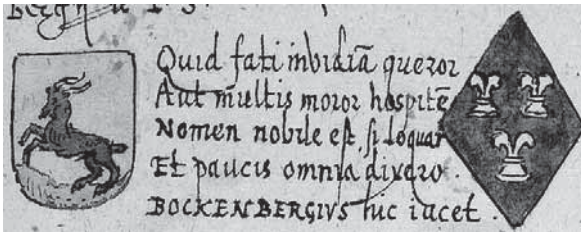 Quid fati invidiā queror
Aut multis moror hospitē
Nomen nobile est, si loquar
Et paucis omnia dixero.
BOCKENBERGIVS hic iacet.